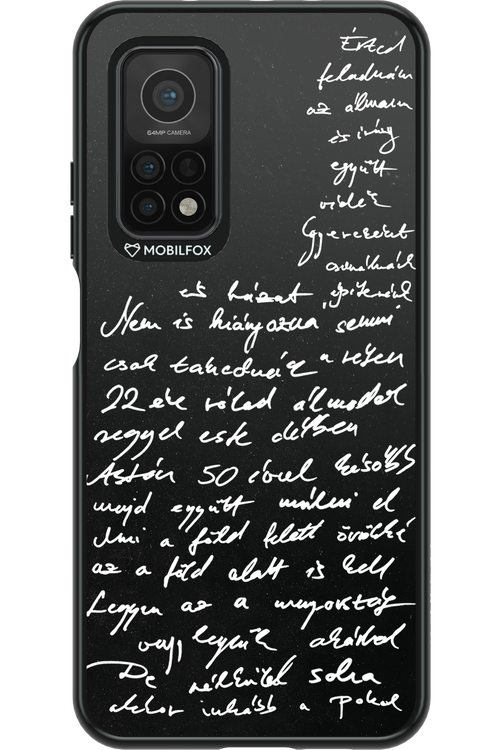 64MP CAMERA
MOBILFOX
Érted
feladnám
az álmam
és irány
együtt
vidék
Gyerekeket
csinálnák
és házat építenék
Nem is hiányozna semmi
csak takednák a résen
22 éve rólad álmodok
reggel este délben
Aztán 50 évvel később
majd együtt múlni el
Ami a föld felett örökké
az a föld alatt is kell
Legyen az a mennyország
vagy legyünk akárhol
De nélküled soha
akkor inkább a pokol